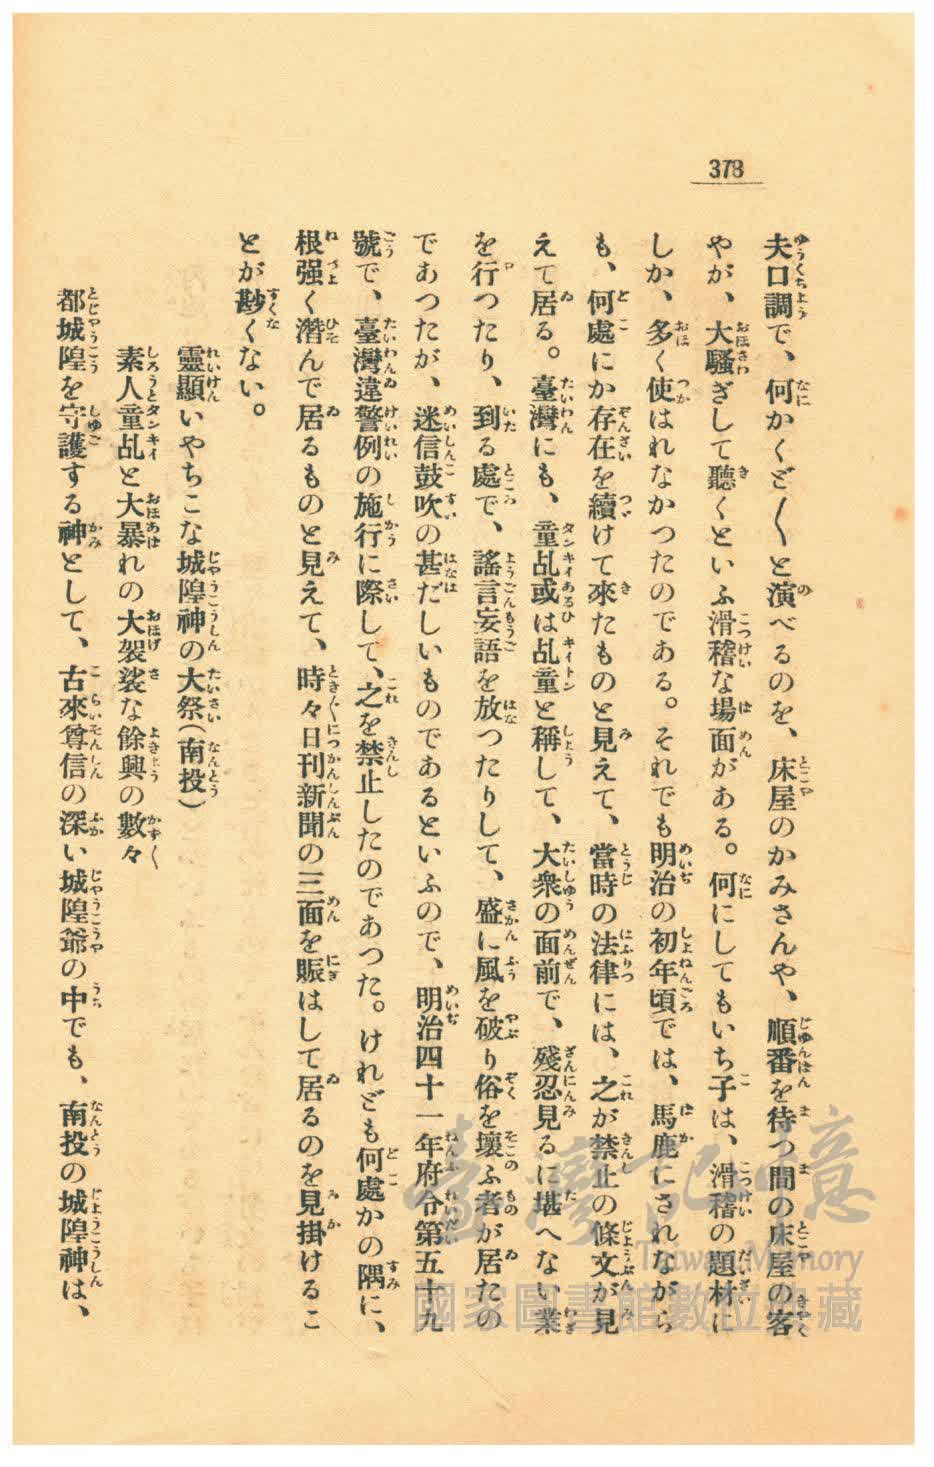 378
夫口調で、何かくど〱と演べるのを、床屋のかみさんや、順番を待つ間の床屋の客
やが、大騒ぎして聽くといふ滑稽な場面がある。何にしてもいち子は、滑稽の題材に
しか、多く使はれなかつたのである。それでも明治の初年頃では、馬鹿にされながら
も、何處にか存在を續けて來たものと見えて、當時の法律には、之が禁止の條文が見
えて居る。臺灣にも、童乩或は乩童と稱して、大衆の面前で、殘忍見るに堪へない業
を行つたり、到る處で、謠言妄語を放つたりして、盛に風を破り俗を壞ふ者が居たの
であつたが、迷信鼓吹の甚だしいものであるといふので、明治四十一年府令第五十九
號で、臺灣違警例の施行に際して、之を禁止したのであつた。けれども何處かの隅に、
根强く潛んで居るものと見えて、時々日刊新聞の三面を賑はして居るのを見掛けるこ
とが尠くない。
靈顯いやちこな城隍神の大祭(南投)
素人童乩と大暴れの大袈裟な餘興の數々
都城隍を守護する神として、古來尊信の深い城隍爺の中でも、南投の城隍神は、
臺灣記憶
Taiwan Memory
國家圖書館數位典藏